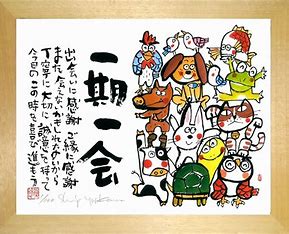 一期一会
出会いに感謝 ご縁に感謝
また会えないかもしれないのだから
丁寧に大切に 誠意を持って
今日のこの時を喜び進もう